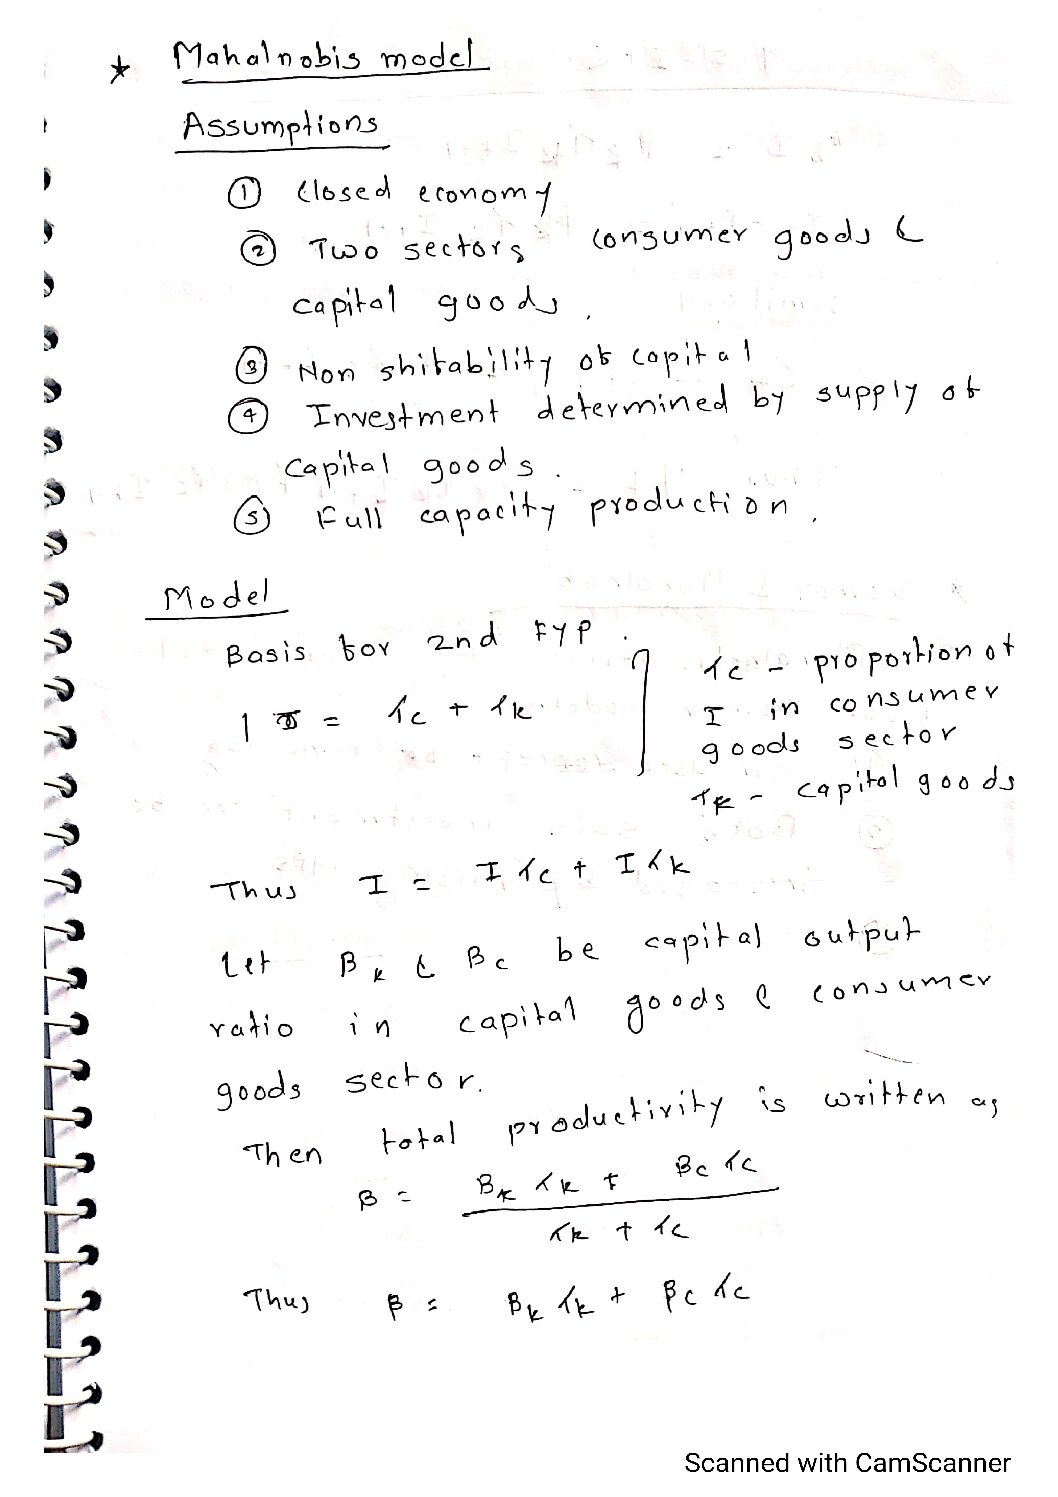 * Mahalnobis model
Assumptions
① Closed economy
② Two sectors consumer goods &
capital goods.
③ Non shifability of capital
④ Investment determined by supply of
capital goods.
⑤ Full capacity production.
Model
Basis for 2nd FYP.
1 = λc + λk
λc - proportion of
I in consumer
goods sector
λk - capital goods
Thus I = I λc + I λk
Let Bk & Bc be capital output
ratio in capital goods & consumer
goods sector.
Then total productivity is written as
β = Bk λk + Bc λc
λk + λc
Thus β = Bk λk + βc λc
Scanned with CamScanner